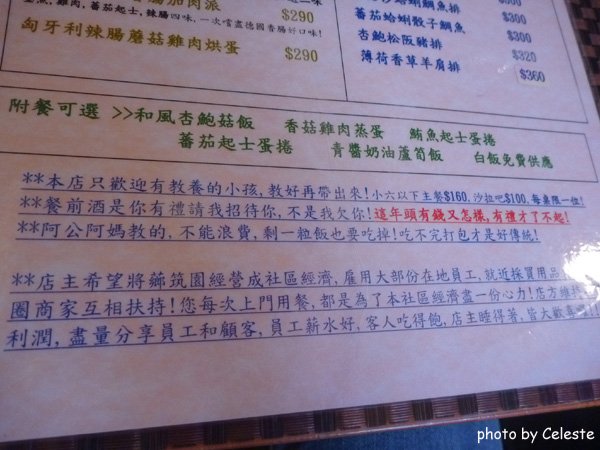 雞肉, 蕃茄起士, 辣腸四味, 一次嚐盡德國香腸好口味!
$290
匈牙利辣腸蘑菇雞肉烘蛋 $290
蕃茄蛤蜊骰子鯛魚 $300
杏鮑松阪豬排 $320
薄荷香草羊肩排 $360
附餐可選 >>和風杏鮑菇飯 香菇雞肉蒸蛋 鮪魚起士蛋捲
蕃茄起士蛋捲 青醬奶油蘆筍飯 白飯免費供應
**本店只歡迎有教養的小孩, 教好再帶出來!小六以下主餐$160, 沙拉吧$100, 每桌限一位!
**餐前酒是你有禮請我招待你, 不是我欠你!這年頭有錢又怎樣, 有禮才了不起!
**阿公阿媽教的, 不能浪費, 剩一粒飯也要吃掉!吃不完打包才是好傳統!
**店主希望將薌筑園經營成社區經濟, 雇用大部份在地員工, 就近採買用品
圈商家互相扶持!您每次上門用餐, 都是為了本社區經濟盡一份心力!店方維持
利潤, 盡量分享員工和顧客, 員工薪水好, 客人吃得飽, 店主睡得著, 皆大歡喜
photo by Celeste